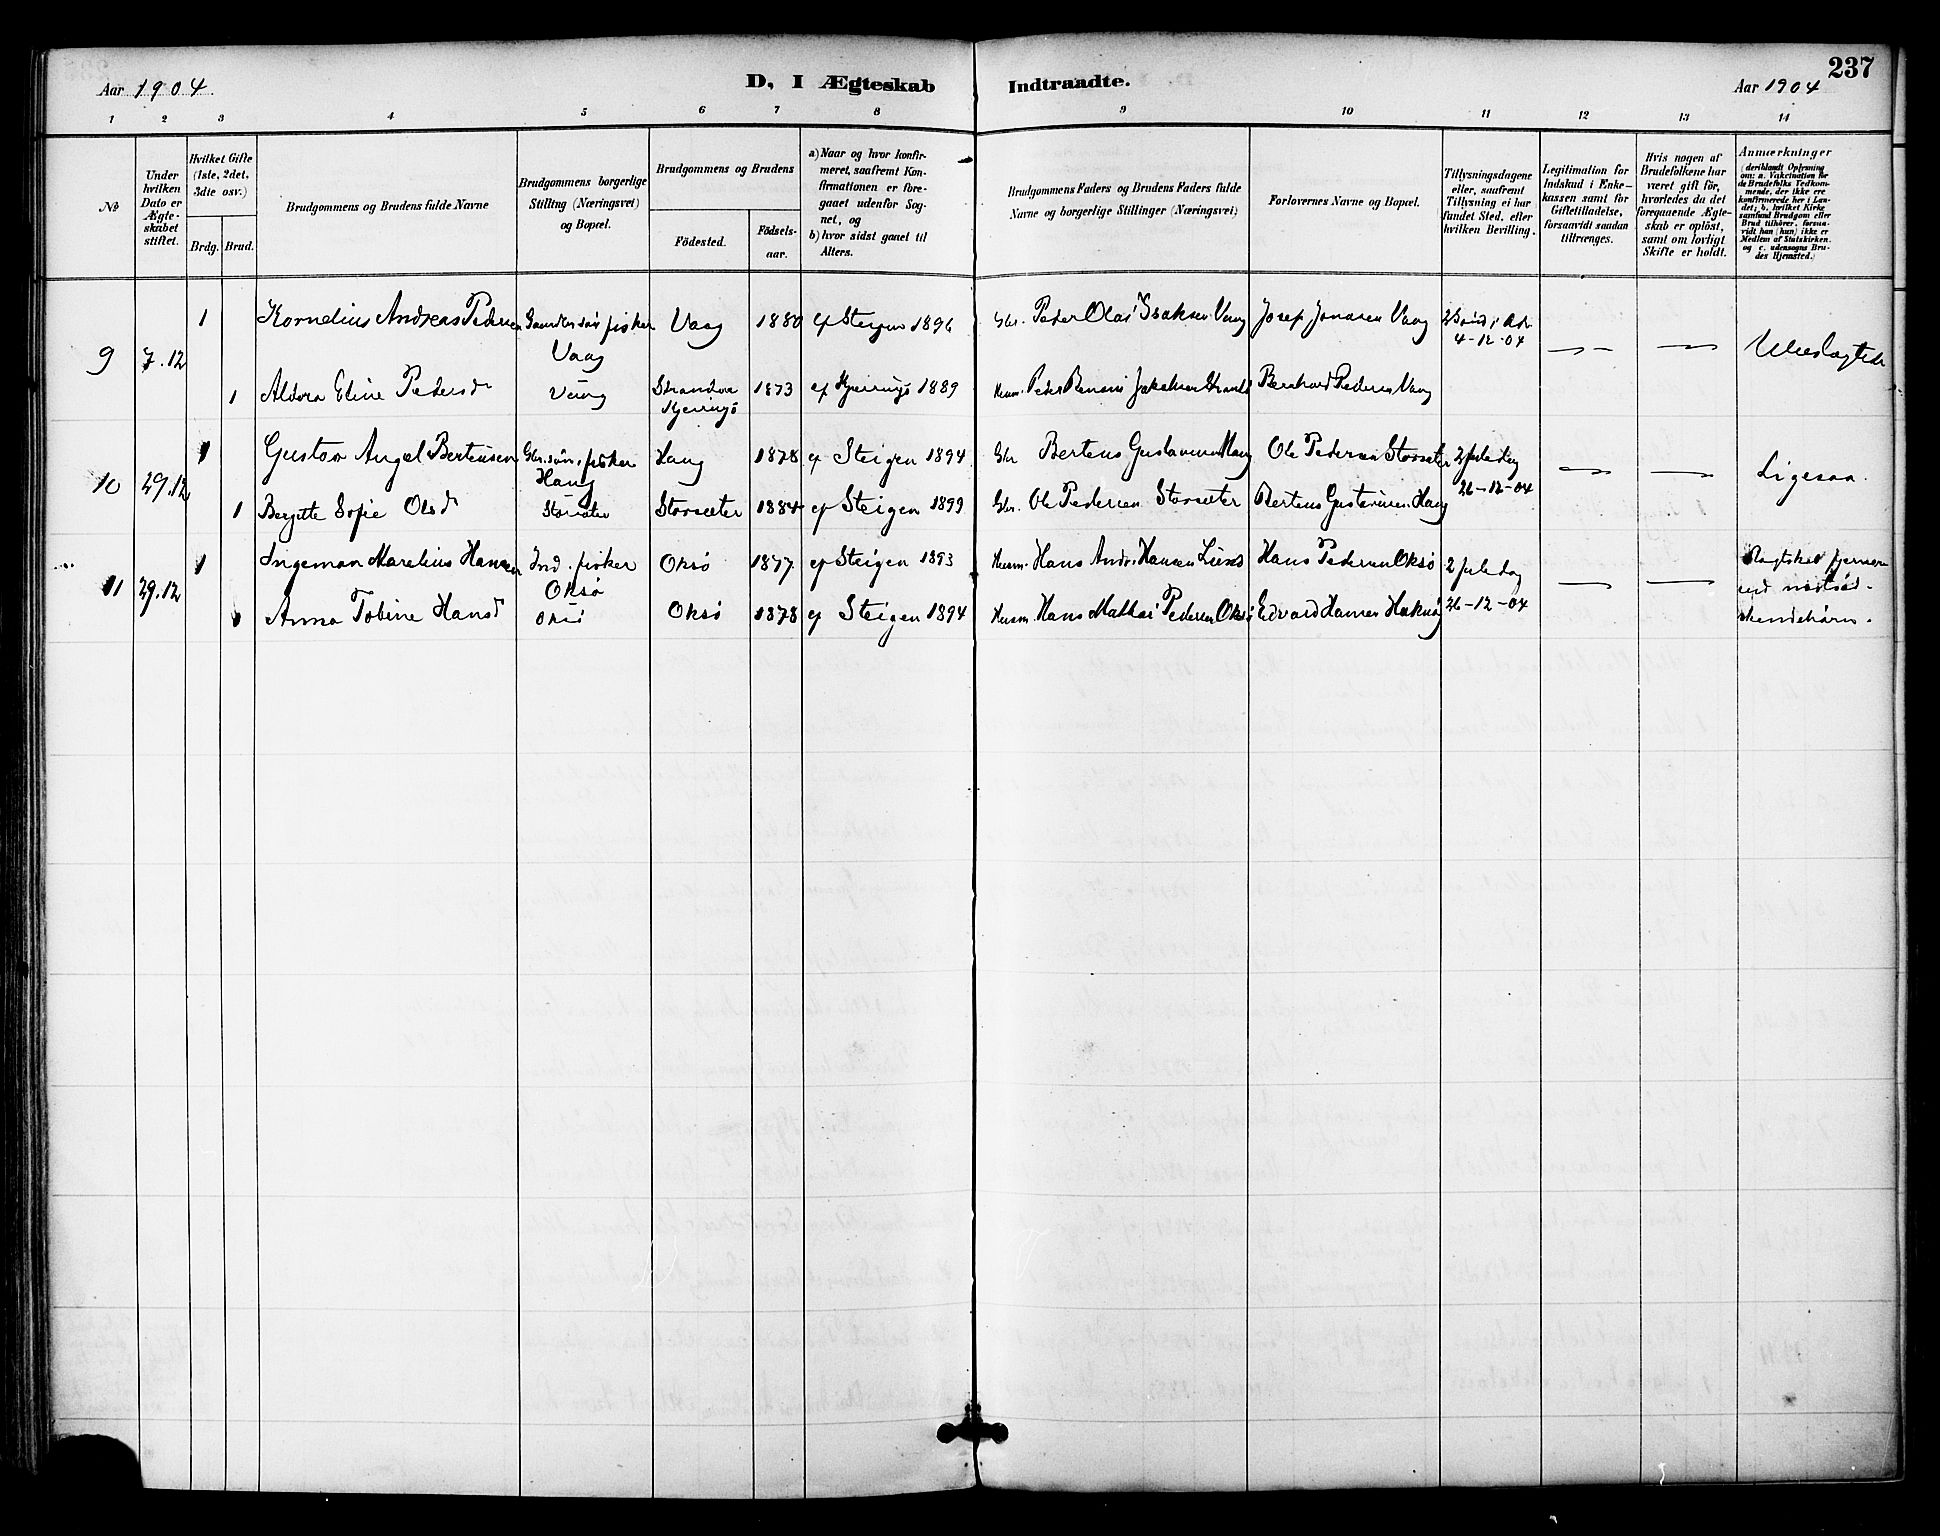 237
Aar 1904.
D, I Ægteskab Indtraadte.
Aar 1904
1 2 3 4 5 6 7 8 9 10 11 12 13 14
No
Under hvilken Dato er Ægteskabet stiftet.
Hvilket Gifte (1ste, 2det, 3die osv.)
Brdg. Brud.
Brudgommens og Brudens fulde Navne
Brudgommens borgerlige Stilling (Næringsvei) og Bopæl.
Brudgommens og Brudens
Födested.
Födsels-aar.
a) Naar og hvor konfir-
meret, saafremt Kon-
firmationen er fore-
gaaet udenfor Sog-
net, og
b) hvor sidst gaaet til
Alters.
Brudgommens Faders og Brudens Faders fulde
Navne og borgerlige Stillinger (Næringsvei)
Forlovernes Navne og Bopæl.
Tillysningsdagene
eller, saafremt
Tillysning ei har
fundet Sted, efter
hvilken Bevilling.
Legitimation for
Indskud i Enke-
kassen samt for
Giftetilladelse,
forsaavidt saadan
tiltrænges.
Hvis nogen af
Brudefolkene har
været gift för,
hvorledes da det
foregaaende Ægte-
skab er oplöst,
samt om lovligt
Skifte er holdt.
Anmærkninger
(deriblandt Oplysning
om: a. Vakcination for
de Brudefolks Vedkom-
mende, der ikke ere
konfirmerede her i Lan-
det; b. hvilket Kirke-
samfund Brudgom eller
Brud tilhörer, forsaa-
vidt han (hun) ikke er
Medlem af Statskirken.
og c. udensogns Bru-
des Hjemsted.)
9 7.12 1 Kornelius Andreas Pedersen fisker Vaag 1880 ef Steigen 1896 Gbr. Peder Olai Isaksen Vaag Josef Jonasen Vaag
Vaag
4-12-04
Ubeslægtede
1 Aldora Eline Pedersd Vaag Kjerringö 1873 ef Kjerringö 1889 Husm. Peder Jakobsen Bernhard Pedersen Vaag
10 29.12 1 Gustav Angel Berteusen Gbr. sön, fisker Haug 1878 ef Steigen 1894 Gbr Berteus Gustavsen Haug Ole Pedersen Storsæter 2 juledag
Haug
26-12-04
Ligesaa.
1 Bergitte Sofie Olsd Storsæter Storsæter 1884 ef Steigen 1899 Gbr. Ole Pedersen Storsæter Berteus Gustavsen Haug
11 29.12 1 Ingeman Marelius Hansen Ind. fisker Oksö 1877 ef Steigen 1893 Husm. Hans Andr. Hansen Hans Pedersen Oksö 2 juledag
Oksö
1 Anna Tobine Hansd Oksö Oksö 1878 ef Steigen 1894 Husm. Hans Mathis Pedersen Oksö Edvard Hansen 26-12-04
Slægtskab fjernere
end næstsöd-
skendebörn.